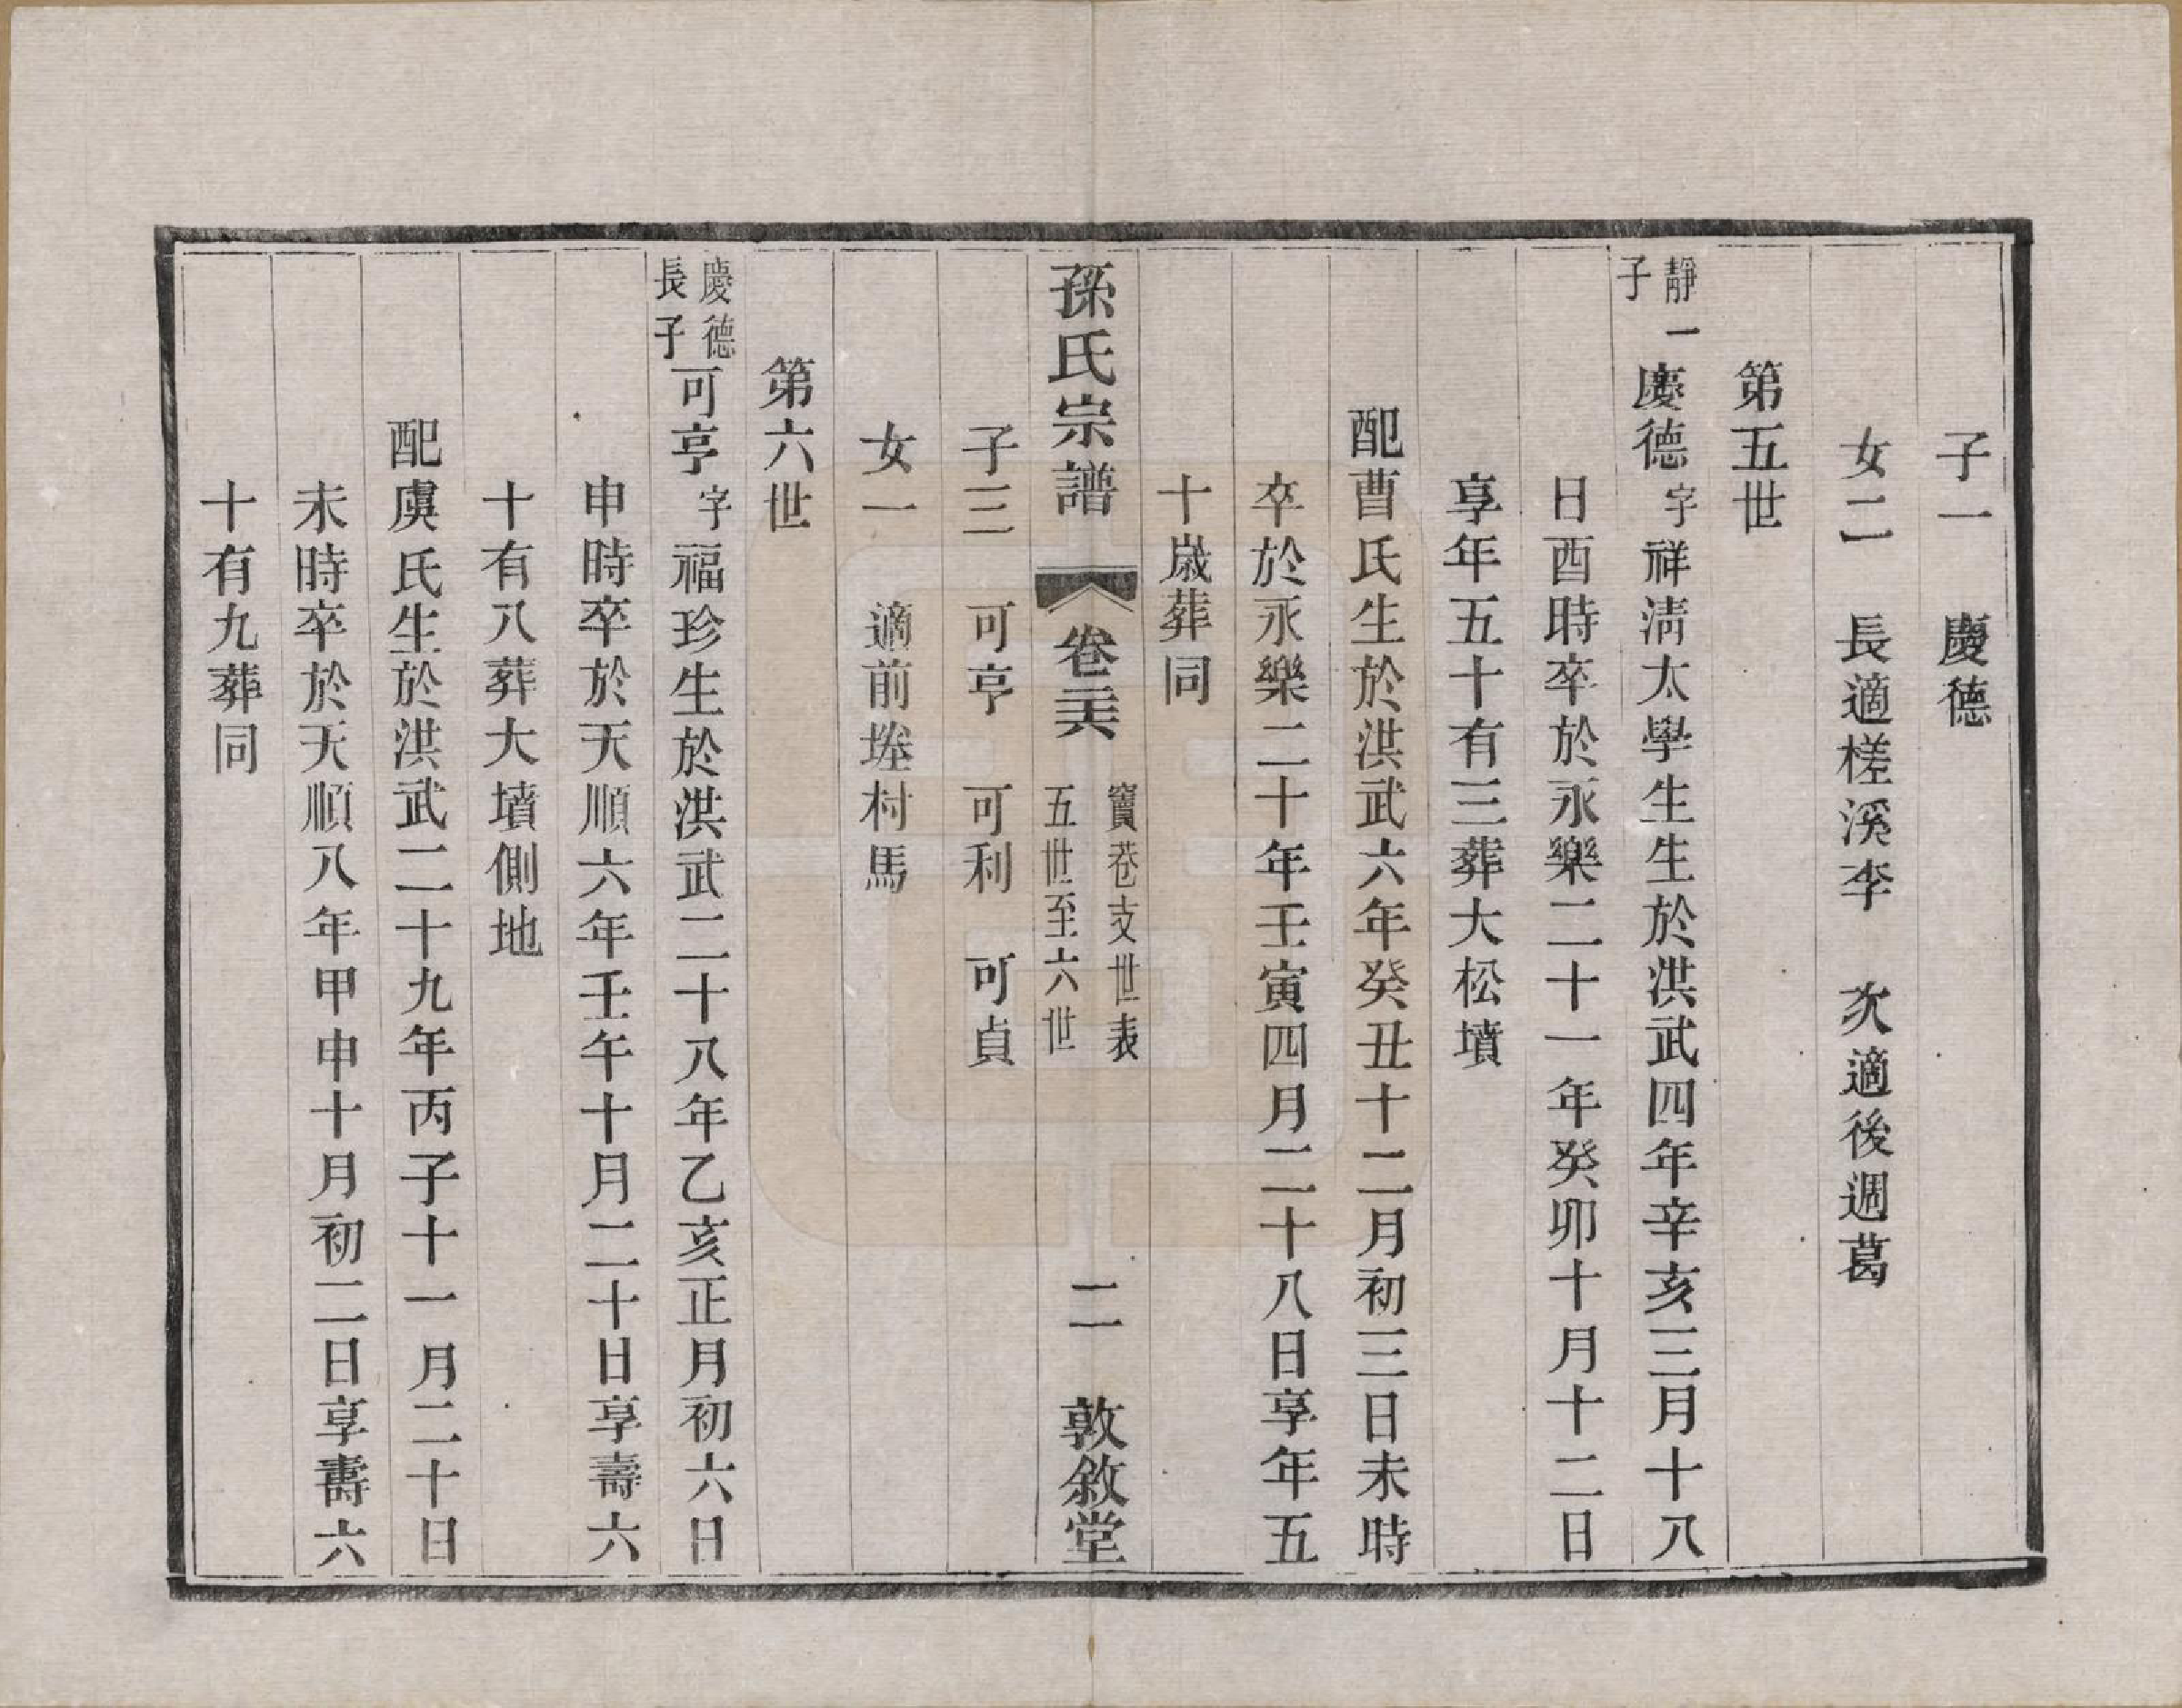 子一　慶德
女二　長適槎溪李　次適後週葛
第五世
靜一子慶德字祥淸太學生生於洪武四年辛亥三月十八
日酉時卒於永樂二十一年癸卯十月十二日
享年五十有三葬大松墳
配曹氏生於洪武六年癸丑十二月初三日未時
卒於永樂二十年壬寅四月二十八日享年五
十歲葬同
子三　可亨　可利　可貞
孫氏宗譜　卷二六　寶巷支世表五世至六世　二　敦敘堂
女一　適前塍村馬
第六世
慶德長子可亨字福珍生於洪武二十八年乙亥正月初六日
申時卒於天順六年壬午十月二十日享壽六
十有八葬大墳側地
配虞氏生於洪武二十九年丙子十一月二十日
未時卒於天順八年甲申十月初二日享壽六
十有九葬同